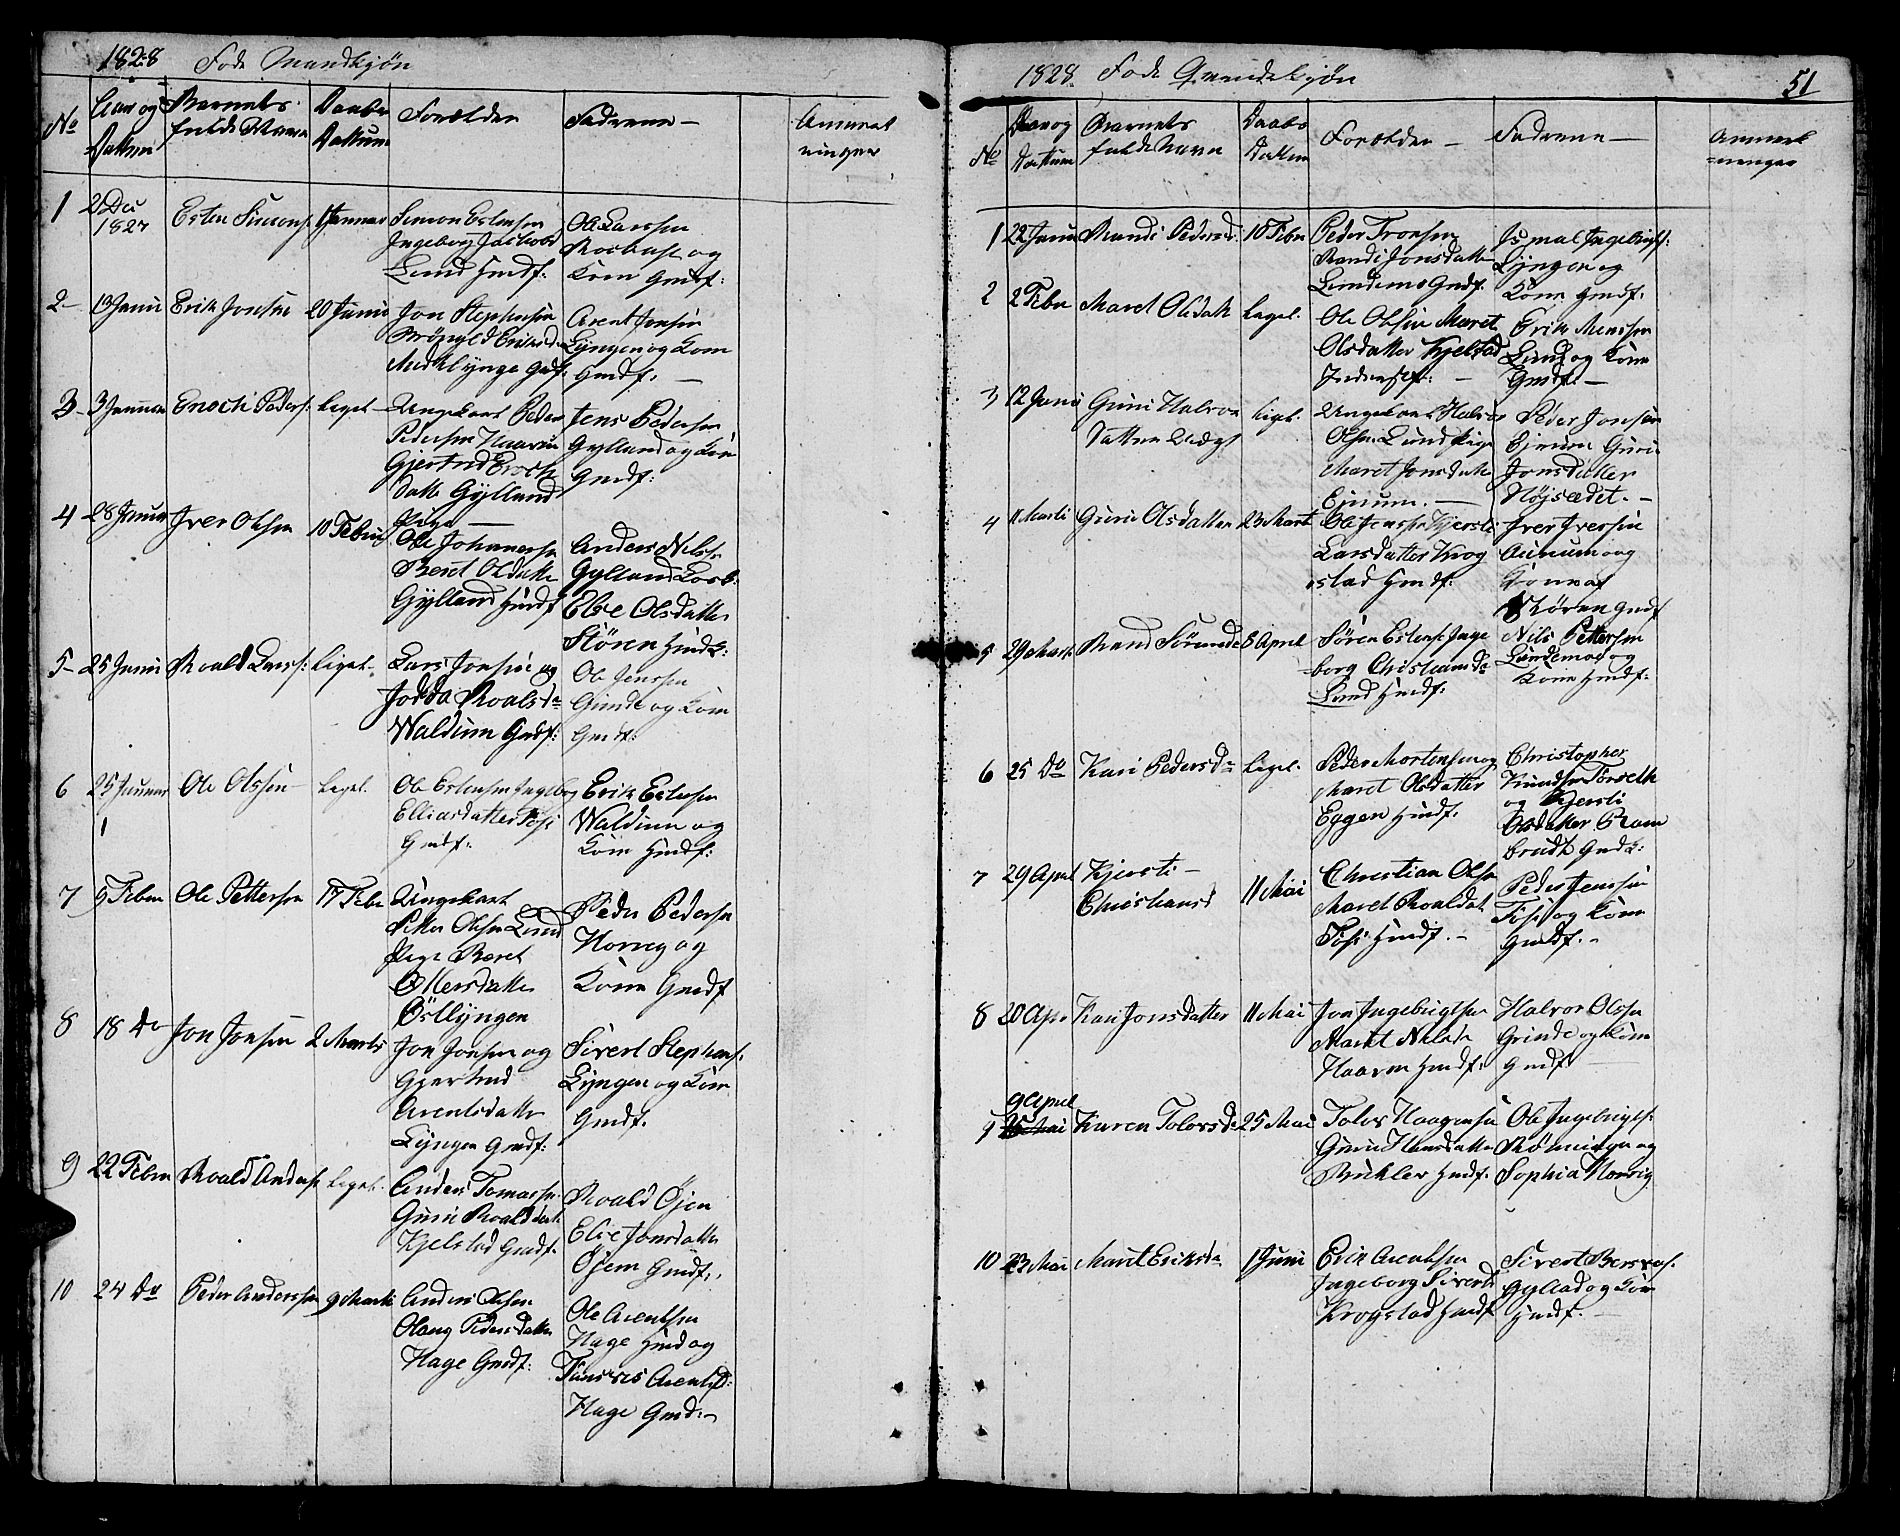 1828 Föde Mandkjön
No
Aar og
Dattum
Barnets
fulde Navn
Daabs
Dattum
Forældre
Fadrene
Anmerk
ninger
1
2 Dec
1827
Esten Simons:
1 Januar
Simon Estensen
Ingeborg Jacobsd
Lund Gmdf:
Ole Larssen
og
Kone Gmdf:
2
13 Janu
Erik Jonsen
20 Janu
Jon Stephensen
Brönyld Eriksd
Medklynge Gmdf:
Arent Jonsen
Lyngen og Kone
Gmdf.
3
3 Januar
Enoch Peders:
liget
Ungekarl Peder
Pedersen Haarem
Gjertrud Enoch
datter Gylland
Pige
Jens Pedersen
Gylland og Kone
Gmdf:
4
28 Januar
Iver Olsen
10 Febru
Ole Johannesen
Beret Olsdatter
Gylland Hmdf
Anders Nilsen
Gylland
Else Olsdatter
Stören Hmdk:
5
25 Janu
Roald Lars:
liget
Lars Jonsen og
Jodda Roalsd
Waldum Gmdf:
Ole Jenssen
Grinde og Kone
Gmdf:
6
25 Januar
Ole Olssen
liget.
Ole Estensen Ingeborg
Elliasdatter Fosi
Gmdf:
Erik Estensen
Waldum og
Kone Hmdf:
7
9 Febru
Ole Pettersen
17 Febr
Ungekarl
Petter Olsen Lund
Pige Beret
Ollersdatter
Östlyngen
Peder Pedersen
Horrig og
Kone Gmdf
8
18 Do
Jon Jonsen
2 Marts
Jon Jonsen og
Gjertrud
Arentsdatter
Lyngen Gmdf:
Sivert Stephens:
Lyngen og Kone
Gmdf.
9
22 Febru
Roald Anders:
liget.
Anders Tomassen
Guru Roaldsdat
Kjelstad Gmdf.
Roald Öien
Else Jonsdatter
Öiem Gmdf.
10
24 Do
Peder Anderssen
9 Marts
Anders Olsen
Olang Pedersdatter
Hage Gmdf:
Ole Arentsen
Hage Hmd og
Arentsd:
Hage Gmd:
1828. Föde Qvindekjön
51
No
Aar og
Dattum
Barnets
fulde Navn
Daabs
Datum
Forældre
Fadrene
Anmerk
ninger
1
22 Janu
Randi Pedersd:
10 Febr
Peder Tronsen
Randi Jonsdatter
Lundemo Gmdf.
Ismal Ingebrigts:
Lyngen og
Kone Hmdf.
2
2 Febr
Maret Olsdatt
liget.
Ole Olsen Maret
Olsdatter Kjelstad
Inderst:
Erik Monssen
Lund og Kone
Gmdf.
3
12 Janu
Guru Halvor
Datter Uægt
liget.
Ungekarl Halvor
Olsen Lund Pige
Maret Jonsdatter
Ejmum.
Peder Jonsen
Ejmum Guru
Jonsdatter
Höjsædet.
4
11 Marts
Guru Olsdatter
23 Mart
Ole Jenssen Kjersti
Larsdatter Krog
stad Hmdf:
Iver Iversen
Aunum og
Kone af
Stören Gmdf
5
29 Marts
Rand Sörensd
8 April
Sören Estens: Inge
borg Christiansd
Lund Hmdf:
Nils Pettersen
Lundemo og
Kone Hmdf:
6
25 Do
Kari Pedersd
liget.
Peder Mortensen og
Maret Olsdatter
Eggen Hmdf.
Christopher
Knudsen Forseth
og Kjersti
Olsdatter Ram
brudt Gmdk:
7
29 April
Kjersti
Christiansd
11 Mai
Christian Olsen
Maret Roaldsdat
Fosi Hmdf.
Peder Jenssen
Fosi og Kone
Gmdf.
8
20 Apr
Kari Jonsdatter
11 Mai
Jon Ingebrigtsen
Marit Nilsda
Haarem Hmdf:
Halvor Olsen
Grinde og Kone
Gmdf
9
9 April
Karen Tolovsd
25 Mai
Tolov Haagensen
Guru Hansdatter
Buhler Hmdf.
Ole Ingebrigts:
og
Sophia Horrig
10
23 Mai
Marit Eriksd
1 Juni
Erik Arentsen
Ingeborg Sivertsd
Krogstad Hmdf
Sivert Berses:
Gyllad og Kone
Hmdf.